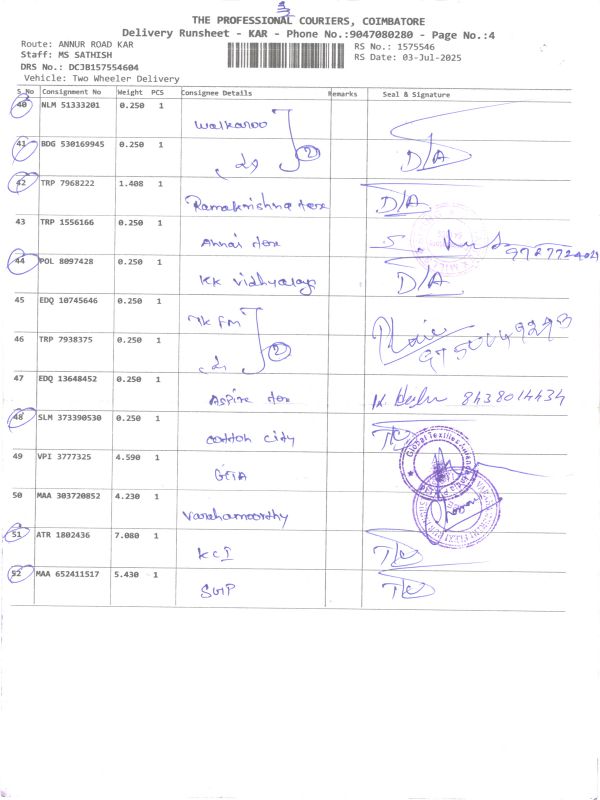 3
THE PROFESSIONAL COURIERS, COIMBATORE
Delivery Runsheet - KAR - Phone No.:9047080280 - Page No.:4
Route: ANNUR ROAD KAR
RS No.: 1575546
Staff: MS SATHISH
RS Date: 03-Jul-2025
DRS No.: DCJB157554604
Vehicle: Two Wheeler Delivery
S.No Consignment No Weight PCS Consignee Details Remarks Seal & Signature
40 NLM 51333201 0.250 1 Walkaroo
41 BDG 530169945 0.250 1 2 D/A
42 TRP 7968222 1.408 1 Ramakrishna tex D/A
43 TRP 1556166 0.250 1 Annai tex
44 POL 8097428 0.250 1 KK Vidhyalaya D/A
45 EDQ 10745646 0.250 1 TK FM
46 TRP 7938375 0.250 1 2
47 EDQ 13648452 0.250 1 Aspire tex 8438014434
48 SLM 373390530 0.250 1 cotton city T/C
Global Textiles
49 VPI 3777325 4.590 1 GETA
50 MAA 303720852 4.230 1 Varahamoorthy
51 ATR 1802436 7.080 1 KCI T/C
52 MAA 652411517 5.430 1 SGIP T/C